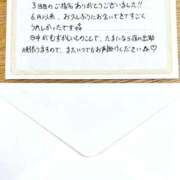 3回目のご指名ありがとうございました!!
6月以来、お久しぶりにお会いできてすごく
うれしかったです
日中がむずかしいとのことで、たまになら夜の出勤
頑張りますので、またいつでもお声掛けください